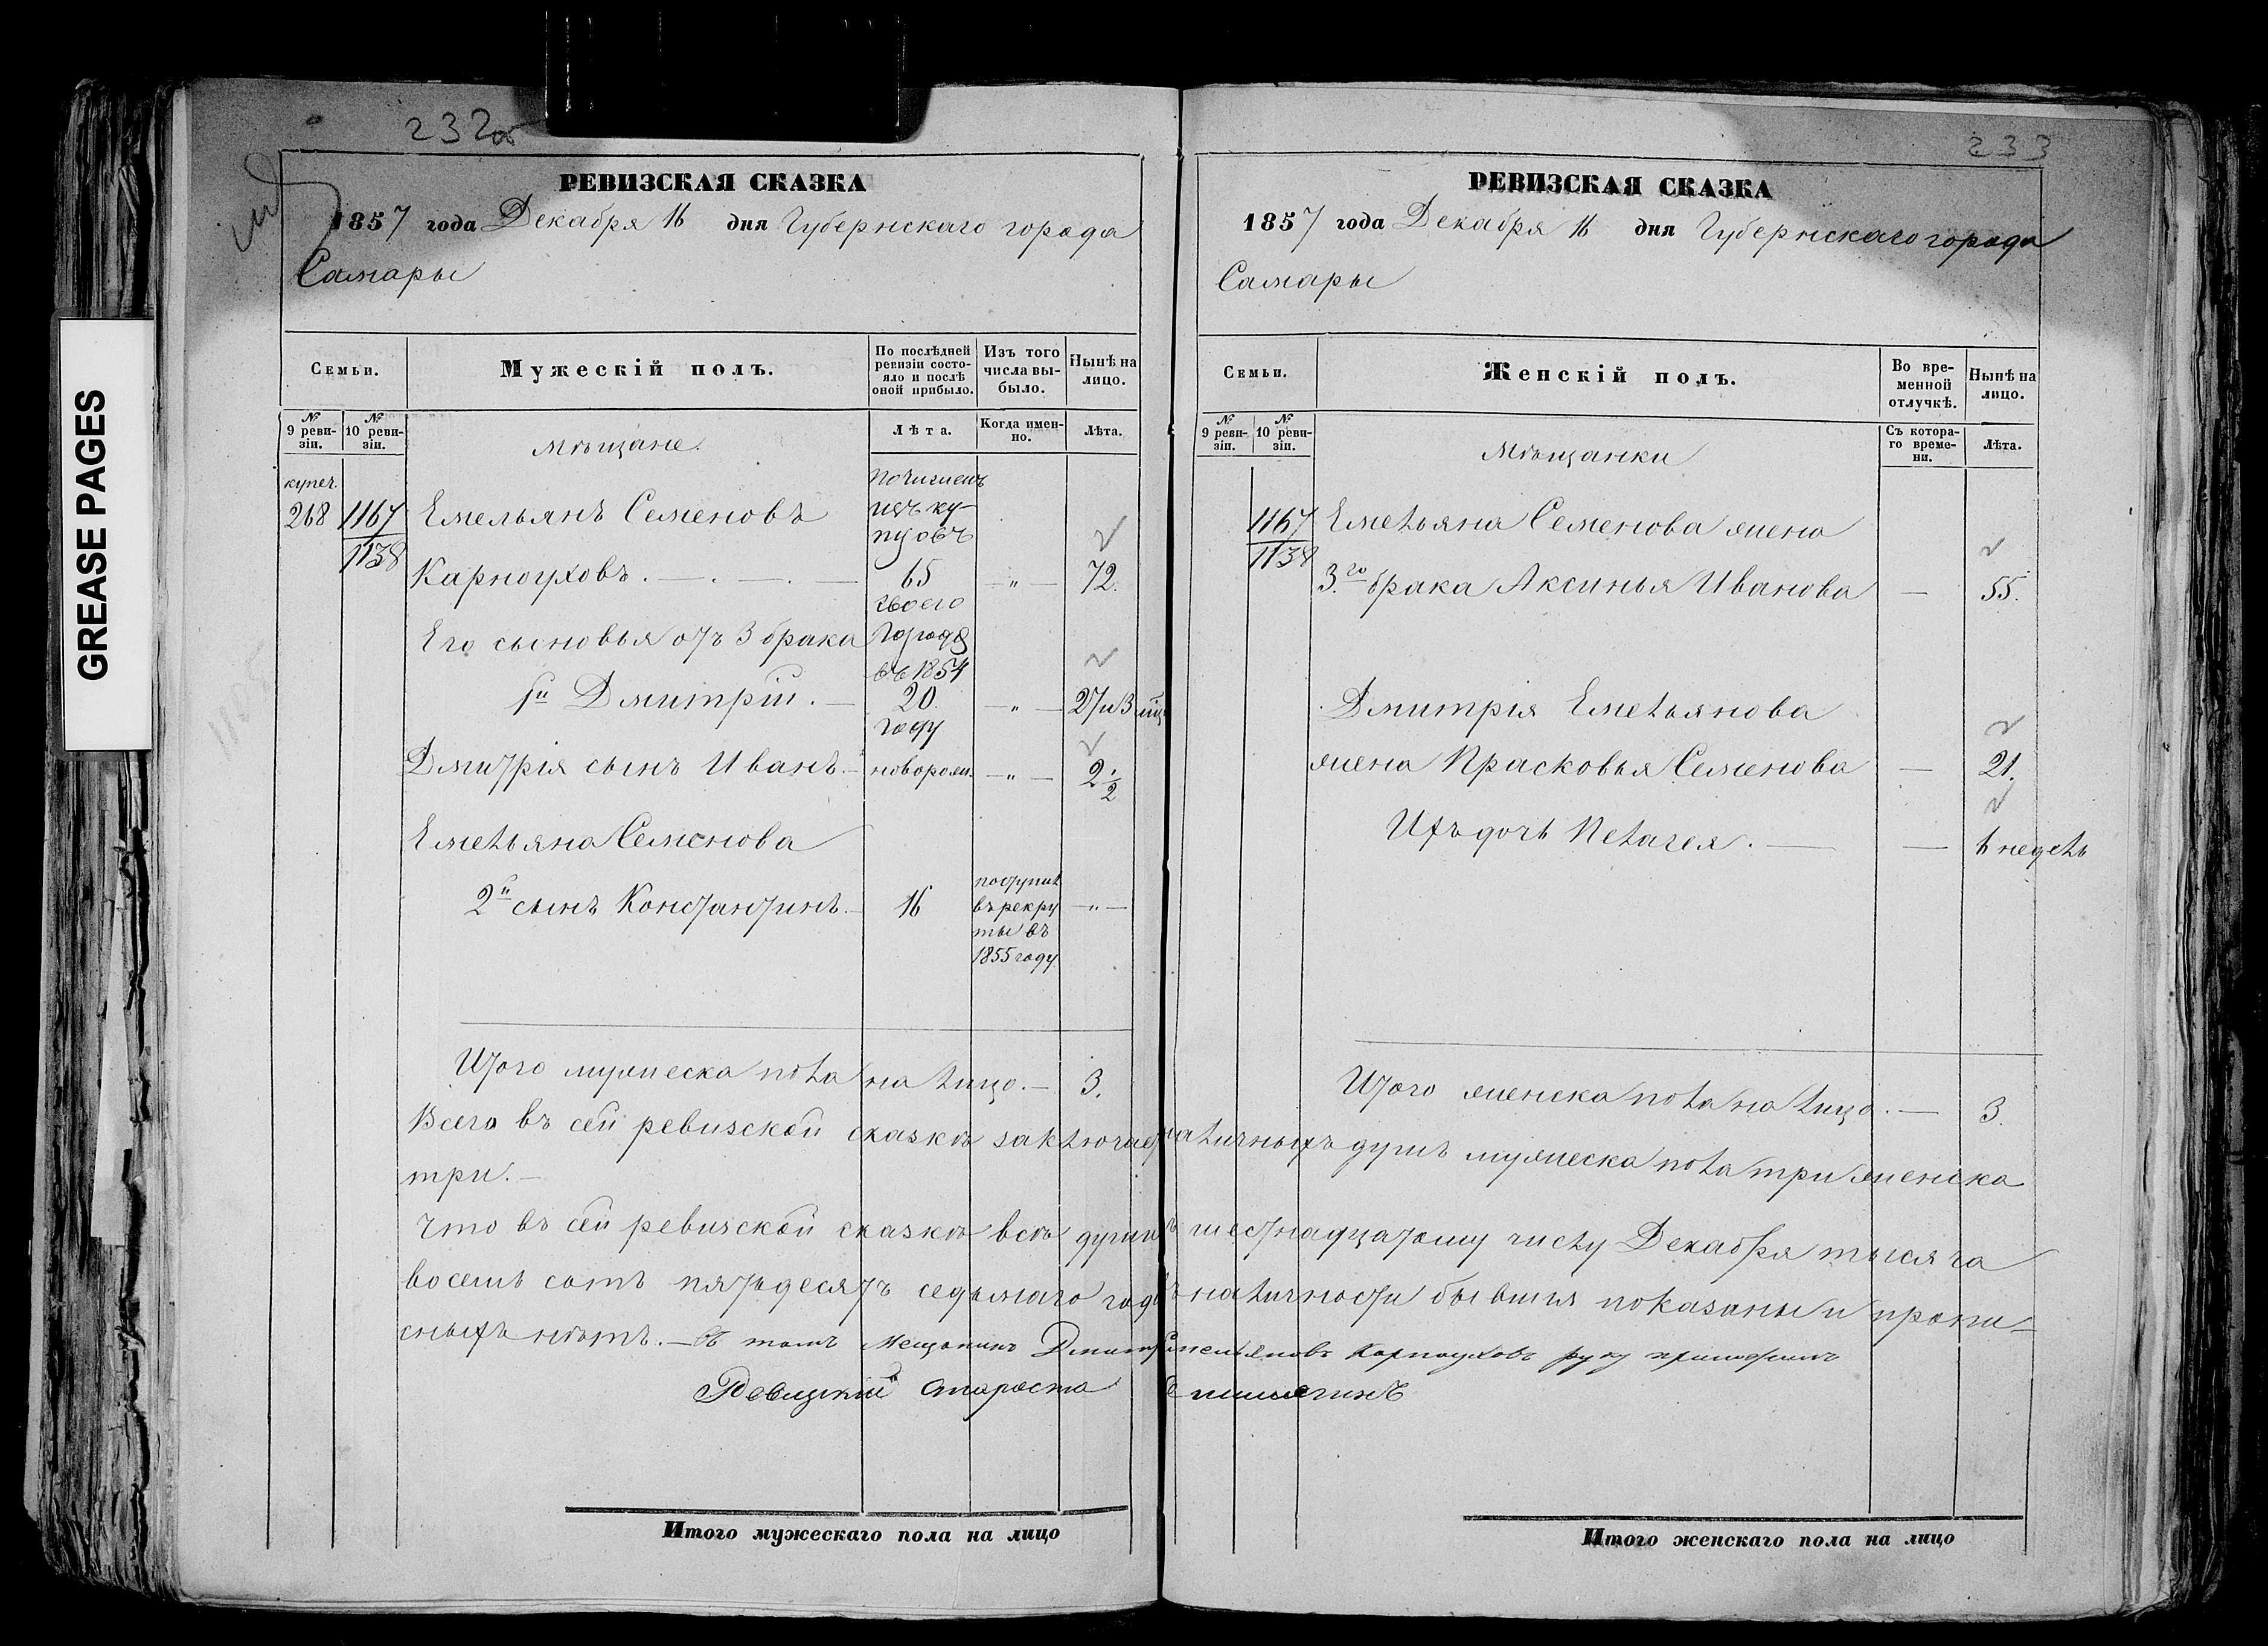 GREASE PAGES
232об
РЕВИЗСКАЯ СКАЗКА
1857 года Декабря 16 дня Губернскаго города
Самары
Семьи.
Мужескій полъ.
По послѣдней ревизіи состо-
яло и послѣ
оной прибыло.
Изъ того
числа вы-
было.
Нынѣ на
лицо.
№
9 реви-
зіи.
№
10 реви-
зіи.
Мѣщане.
Лѣта.
Когда имен-
но.
Лѣта.
купеч.
268
1167
1138
Емельянъ Семеновъ
Карноуховъ.
Почисленъ
изъ ку-
пцовъ
65
своего
города
въ 1854
20.
году
—„—
72.
Его сыновья отъ 3 брака
1й Дмитрій.
—„—
27 и 3 мѣц
Дмитрія сынъ Иванъ.
новорожд.
—„—
2½
Емельяна Семенова
2й сынъ Константинъ
16
поступил
въ рекру
ты въ
1855 году
—„—
Итого мужеска пола на лицо.— 3.
233
РЕВИЗСКАЯ СКАЗКА
1857 года Декабря 16 дня Губернскаго города
Самары
Семьи.
Женскій полъ.
Во вре-
менной
отлучкѣ.
Нынѣ на
лицо.
№
9 реви-
зіи.
№
10 реви-
зіи.
Мѣщанки
Съ котора-
го време-
ни.
Лѣта.
1167
1138
Емельяна Семенова жена
3.го брака Аксинья Иванова — 55.
Дмитрія Емельянова
жена Прасковья Семенова — 21.
Ихъ дочь Пелагея. — 6 недель
Итого женска пола на лицо.— 3.
Всего въ сей ревизской сказкѣ заключает наличныхъ душъ мужеска пола три женска
три.—
Что въ сей ревизской сказкѣ всѣ души къ шестнадцатому числу Декабря тысяча
восемь сотъ пятьдесятъ седьмаго года въ наличности бывшія показаны и пропи-
сныхъ нѣтъ.— въ томъ Мещанинъ Дмитр Емельяновъ Карноуховъ руку приложилъ
Ревизкій староста
Итого мужескаго пола на лицо
Итого женскаго пола на лицо